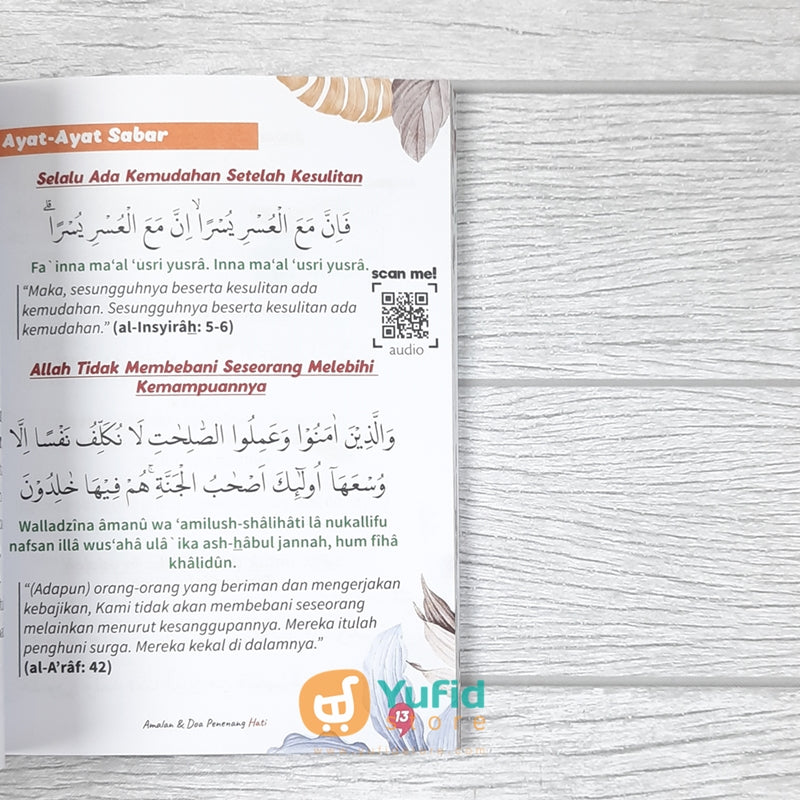 Ayat-Ayat Sabar
Selalu Ada Kemudahan Setelah Kesulitan
فَاِنَّ مَعَ الْعُسْرِ يُسْرًاۙ اِنَّ مَعَ الْعُسْرِ يُسْرًاۗ
Fa`inna ma‘al ‘usri yusrâ. Inna ma‘al ‘usri yusrâ.
scan me!
“Maka, sesungguhnya beserta kesulitan ada
kemudahan. Sesungguhnya beserta kesulitan ada
kemudahan.” (al-Insyirâẖ: 5-6)
audio
Allah Tidak Membebani Seseorang Melebihi
Kemampuannya
وَالَّذِيْنَ اٰمَنُوْا وَعَمِلُوا الصّٰلِحٰتِ لَا نُكَلِّفُ نَفْسًا اِلَّا
وُسْعَهَآ اُولٰۤىِٕكَ اَصْحٰبُ الْجَنَّةِۚ هُمْ فِيْهَا خٰلِدُوْنَ
Walladzîna âmanû wa ‘amilush-shâlihâti lâ nukallifu
nafsan illâ wus‘ahâ ulâ`ika ash-ẖâbul jannah, hum fîhâ
khâlidûn.
“(Adapun) orang-orang yang beriman dan mengerjakan
kebajikan, Kami tidak akan membebani seseorang
melainkan menurut kesanggupannya. Mereka itulah
penghuni surga. Mereka kekal di dalamnya.”
(al-A’râf: 42)
Yufid
Store
Amalan & Doa Penenang Hati
13